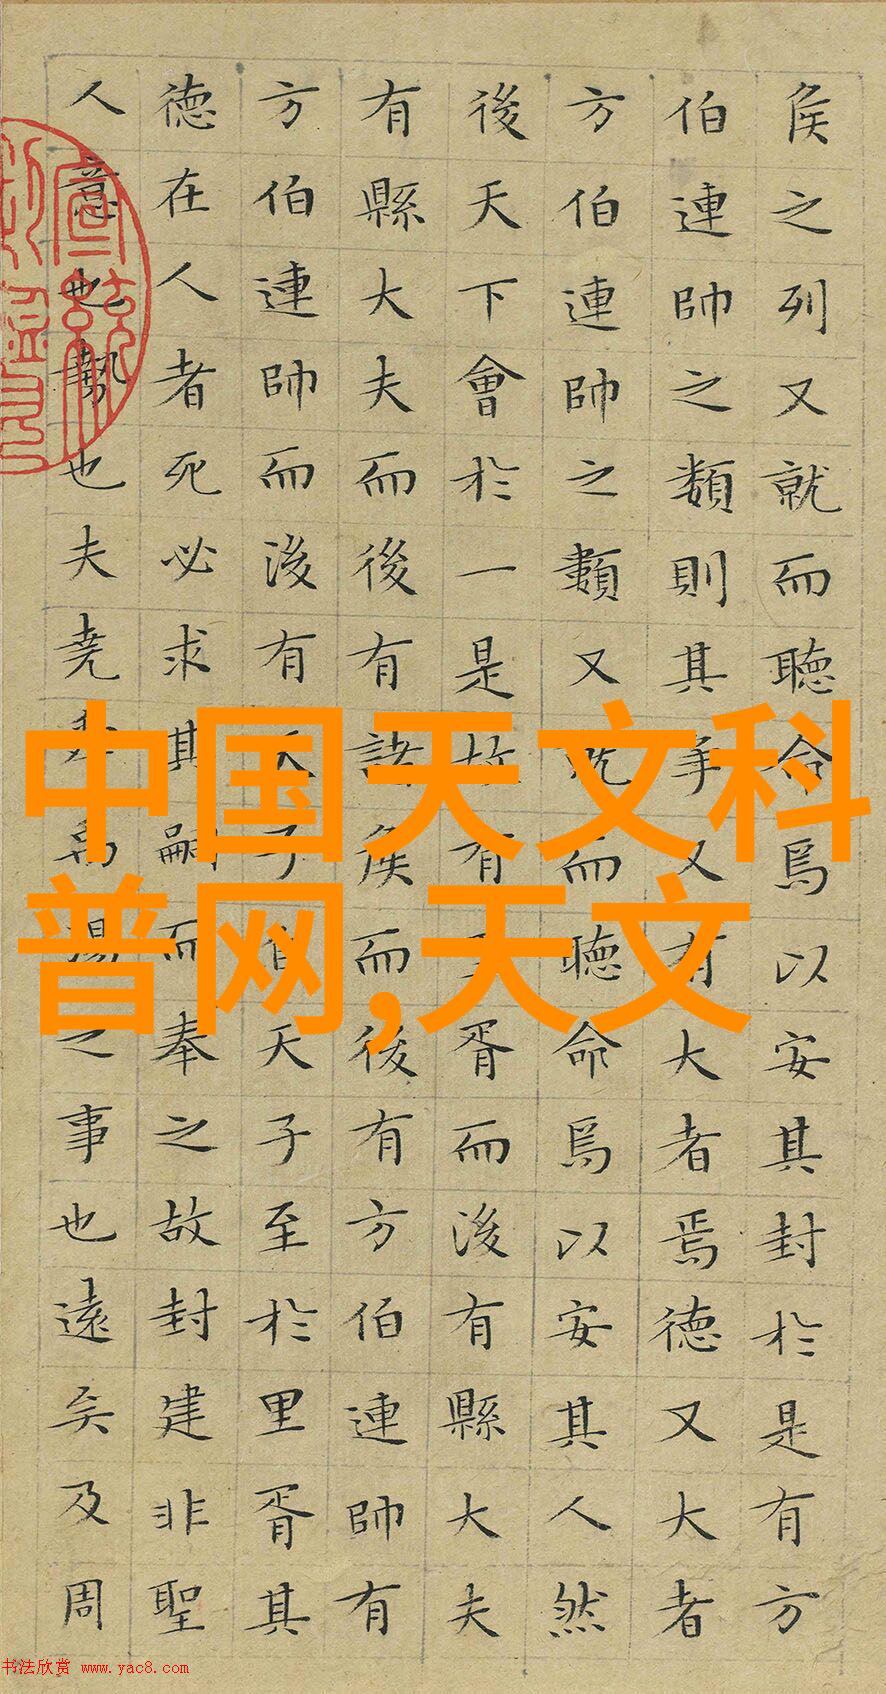 侯之列又就而聽命焉以安其封於是有方
伯連帥之類則其爭又有大者焉德又大者
方伯連帥之類又就而聽命焉以安其人然
後天下會於一是故有里胥而後有縣大夫
有縣大夫而後有諸侯而後有方伯連帥有
方伯連帥而後有天子自天子至於里胥其
德在人者死必求其嗣而奉之故封建非聖
人意也勢也夫堯舜禹湯之事也遠矣及周
中国天文科
普网,天文
书法欣赏 www.yac8.com